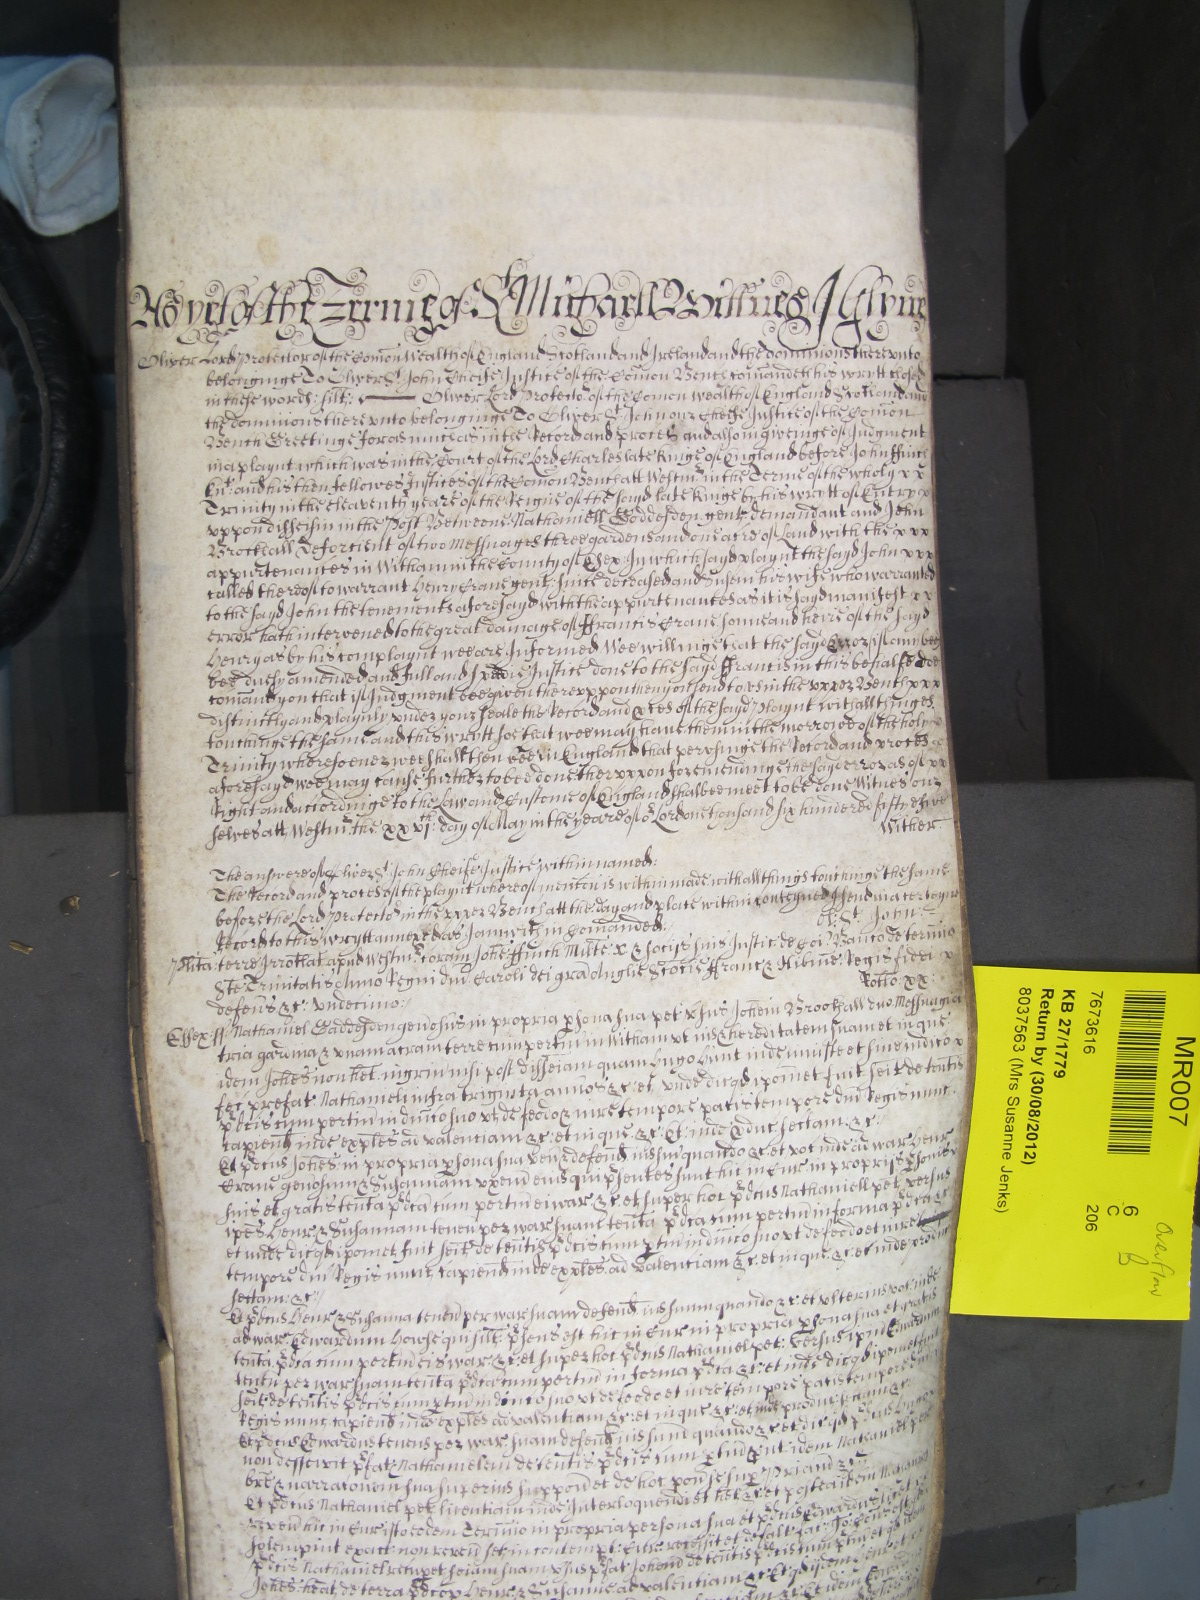 As yet of the Terme of St Michaell Witnes J Glynne
Oliver Lord Protector of the Comon Wealth of England Scotland and Ireland and the dominions thereunto
belonginge To Oliver St John Cheife Justice of the Comon Bench comandeth his wrytt closed
in these words: silt: Oliver Lord Protector of the Comon wealth of England Scotland and
the dominions there unto belonginge To Oliver St John our Cheife Justice of the Comon
Bench Greetinge forasmuch as in the Record and proces and also in giveinge of Judgment
in a playnt which was in the Court of the Lord Charles late Kinge of England before John ffinch
Knt and his then fellowes Justices of the Comon Bench att Westmr in the Terme of the wholy x x
Trinity in the eleaventh yeare of the Reigne of the sayd late Kinge by his wrytt of Entry x
uppon disseisin in the Post Betweene Nathaniell Goddesden gent demandant and John
Brockhall Deforcient of two Messuages three gardens and one acre of Land with the x xx
appurtenances in Witham in the County of Essex In which sayd playnt the sayd John xxx
called thereof to warrant Henry Crane gent: since deceased and Susan his wife who warranted
to the sayd John the tenements aforesayd with the appurtenances as it is sayd manifest xx
error hath intervened to the great damage of ffrancis Crane sonne and heire of the sayd
Henry as by his complaynt wee are Informed Wee willinge that the sayd Error if any bee
bee duely amended and full and speedie Justice done to the sayd ffrancis in this behalfe doe
comand you that if Judgment bee given thereuppon then you send to us in the upper Bench xxx
distinctly and playnly under your seale the Record and proces of the sayd Playnt with all things
touchinge the same and this wrytt soe that wee may have them in the morrowe of the holy
Trinity wheresoever wee shall then bee in England that perusinge the Record and proces
aforesayd wee may cause further to bee done thereuppon for emendinge the sayd error as of xx
Right and accordinge to the Law and Custome of England shalbe meet to be done Witnes our
selves att Westmr the xxvjth day of May in the yeare of or Lord one thousand six hundered fifty & five
Wither
The answere of Oliver St John Cheife Justice within named:
The Record and proces of the playnt whereof mention is within made with all things touchinge the same
before the Lord Protector in the upper Bench att the day and place within conteyned I send in a certayne
Record to this wrytt annexed as I am within comanded:
Ol: St John:
Plita terre Irrotlat apud Westmr coram Johe ffinch Milite x & socijs suis Justic de Coi Banco de termio
Ste Trinitatis Anno Regni dni Caroli dei gra Anglie Scotie ffranc & Hibnie Regis fidei x
defens &c: undecimo:
Rotlo: xx:
Essex ss Nathaniel Goddesden generosus in propria psona sua pet vsus Johem Brockhall duo Messuagia
tria gardina & unam acram terre cum pertin in Witham ut ius & hereditatem suam et in que
idem Johes non het ingrm nisi post disseiam quam Hugo Hunt inde iniuste et sine iudico x
fec prefat Nathanieli infra triginta annos &c: et unde dic qd ipemet fuit seit de tentis
pdcis cum pertin in dnico suo ut de feodo & iure tempore pacis tempore dni Regis nunc
capiend inde exples ad valenciam &c: et in que &c: Et inde pduc sectam: &c:
Et pdcus Johes in propria psona sua ven & defend ius suu quando &c: et voc inde ad war Henr
Crane generosum & Susannam uxem eius qui psentes sunt hic in Cur in proprijs psonis
suis et gratis tenta pdca cum pertin ei war &c: et super hoc pdcus Nathaniell pet versus
ipos Henr & Susannam tenen per war suam tenta pdca cum pertin in forma pdca &c:
et unde dic qd ipemet fuit seit de tentis pdcis cum ptin in dnico suo ut de feodo et iure
tempore dni Regis nunc capiend inde exples ad valenciam &c: et in que &c: et inde produc
sectam: &c:
Et pdcus Henr & Susanna tenen per war suam defend ius suum quando &c: et ulterius voc inde
ad war Edwardum Howse qui silt psens est hic in Cur in propria psona sua et gratis
tenta pdca cum pertin eis war: &c: et super hoc pdcus Nathaniel pet: versus ipm Edwardum
tenen per war suam tenta pdca cum pertin in forma pdca &c: et unde dic qd ipemet fuit
seit de tentis pdcis cum ptin in dnico suo ut de feodo et iure tempore pacis tempore dni
Regis nunc capiend inde exples ad valenciam &c: et in que &c: et inde produc sectam &c:
Et pdcus Edwardus tenens per war suam defend ius suum quando &c: et dic qd pdcus Hugo
non disseivit pfat Nathanielem de tentis pdcis cum ptin put idem Nathaniel per
bre & narraconem sua superius supponit et de hoc pon se sup Priam &c:
Et pdcus Nathaniel pet licentiam inde Interloquendi et het &c: et postea idem Nathaniel
reven hic in Cur isto eodem Termino in propria persona sua et pdcus Edwardus licet
solempnit exact non reven set in contempt: Cur recessit et defalt fac: Io cons est qd
pdcus Nathaniel recupet seiam suam vsus pfat Johem de tentis pdcis cum ptin et qd idem
Johes heat de terra pdcor Henr & Susanne ad valentiam &c:
MR007
7673616
KB 27/1779
Return by (30/08/2012)
8037563 (Mrs Susanne Jenks)
6
C
206
Overflow